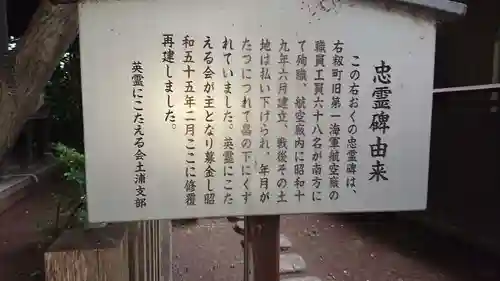 忠霊碑由来
この右おくの忠霊碑は、
右籾町旧第一海軍航空廠の
職員工員六十八名が南方に
て殉職、航空廠内に昭和十
九年六月建立、戦後その土
地は払い下げられ、年月が
たつにつれて畠の下にくず
れていました。英霊にこた
える会が主となり募金し昭
和五十五年二月ここに修覆
再建しました。
英霊にこたえる会土浦支部